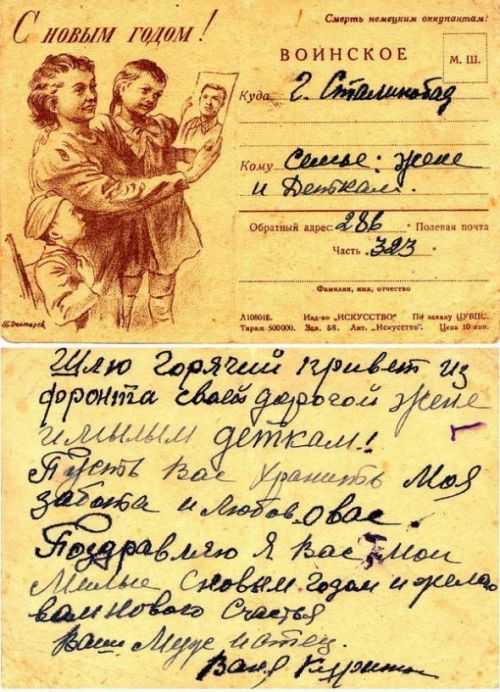 С новым годом!
Смерть немецким оккупантам!
ВОИНСКОЕ
М. Ш.
Куда г. Сталинобад
Кому Семье: жене
и Деткам.
Обратный адрес: 286 Полевая почта
Часть 323
Фамилия, имя, отчество
А10801Б. Изд-во „ИСКУССТВО“ По заказу ЦУВПС.
Тираж 500000. Зак. 58. Лит. „Искусство“. Цена 10 коп.
Шлю Горячий привет из
фронта своей дорогой жене
и милым деткам!
Пусть вас хранить моя
забота и любов о вас.
Поздравляю я вас мои
милые с новым годом и желаю
вам нового счастья
Ваш Муж и отец.
Ваня